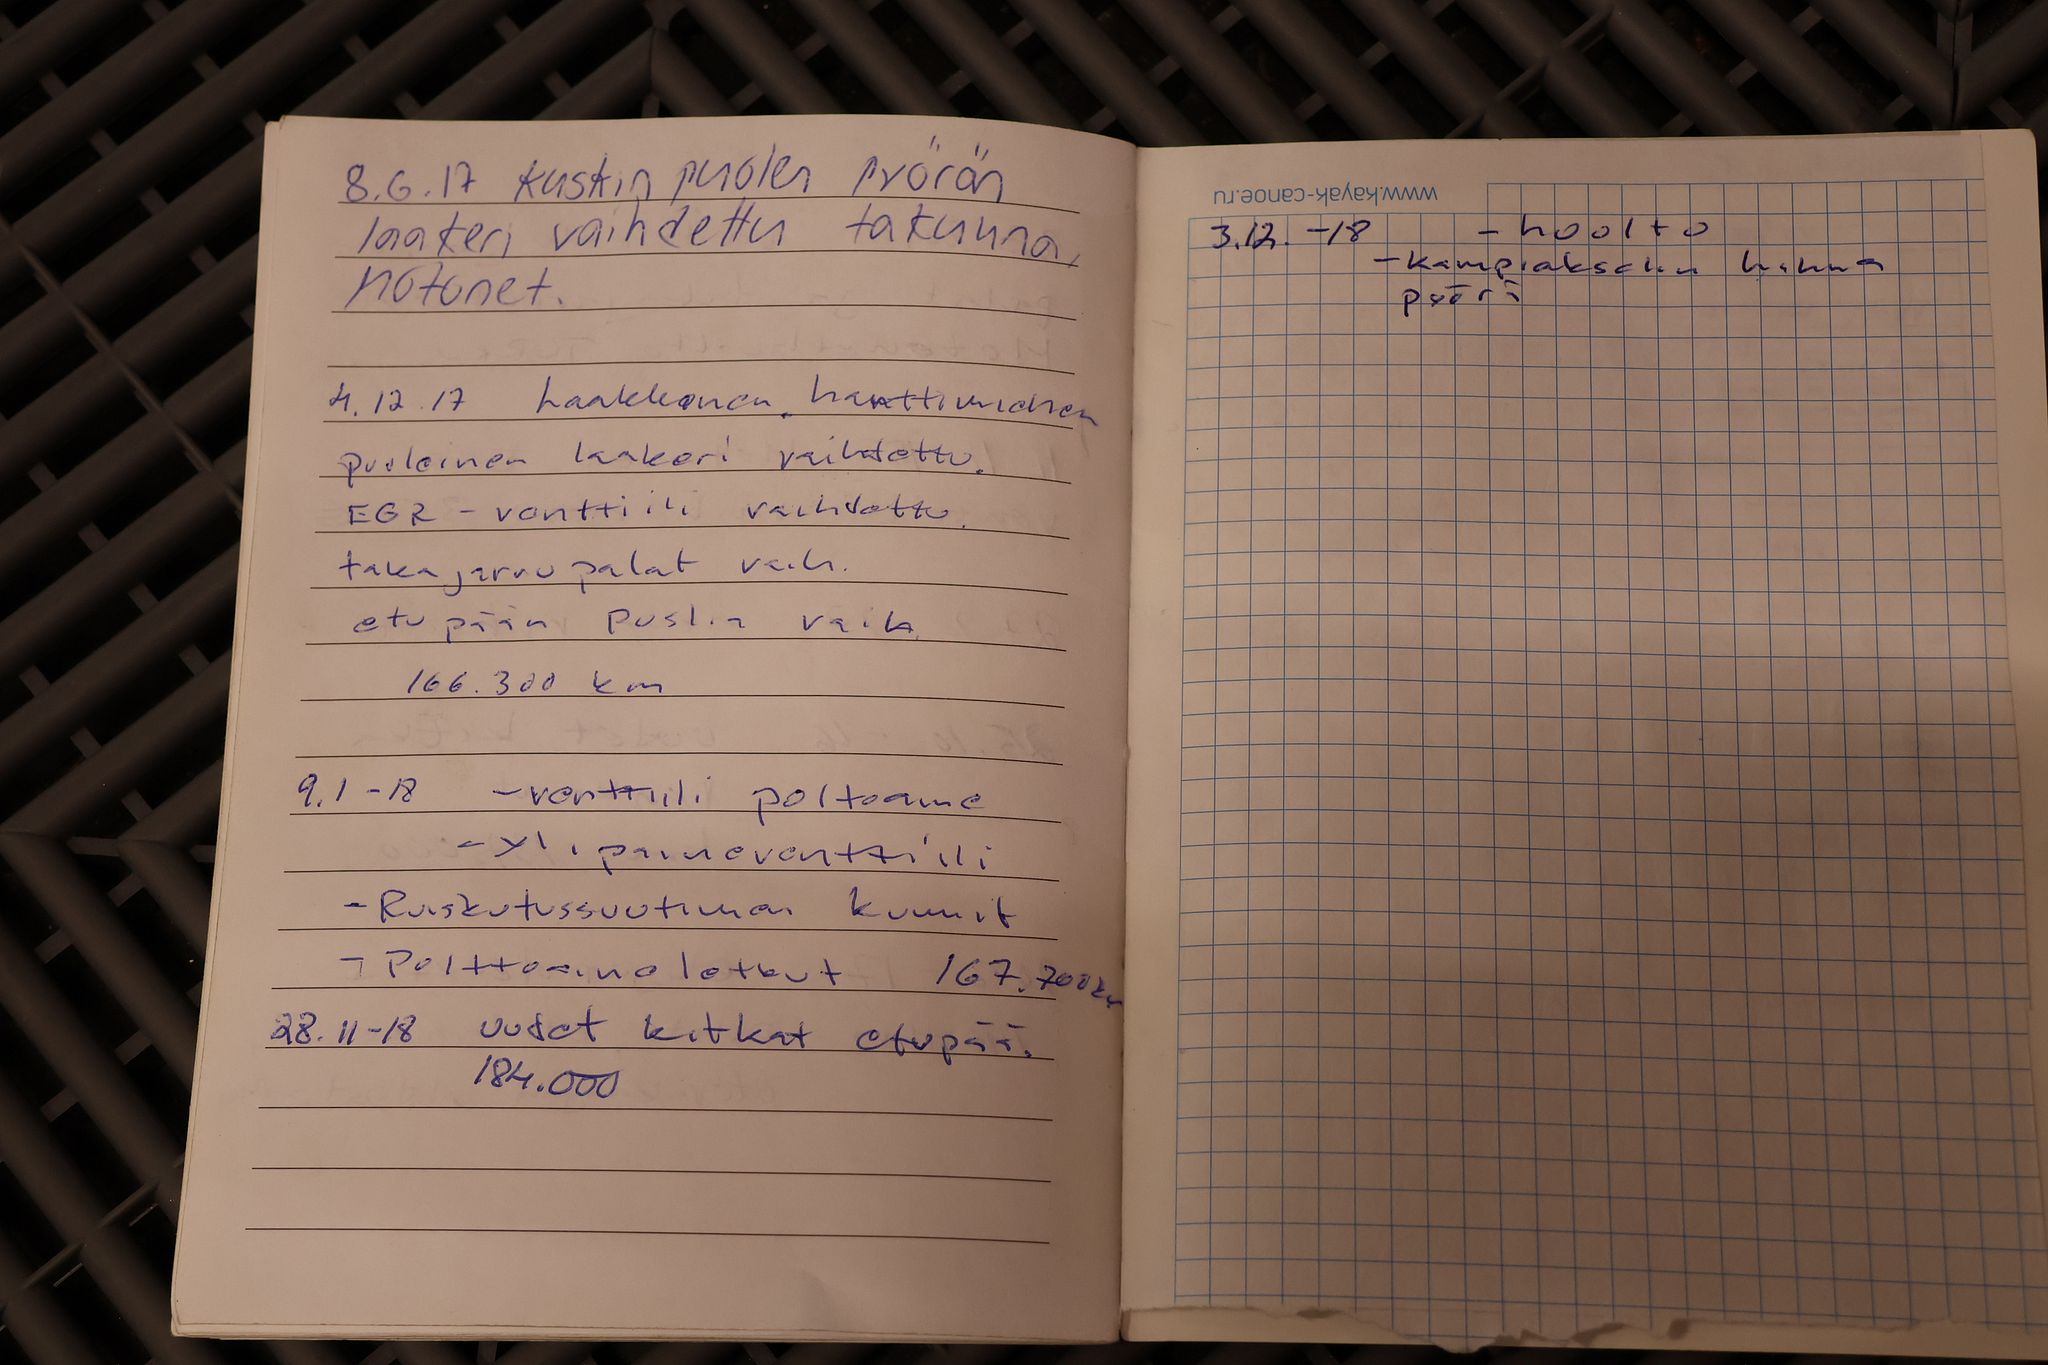 8.6.17 kuskin puolen pyörän
laakeri vaihdettu takuuna,
Motonet.
4.12.17 Laakkonen. hanttimiehen
puoleinen laakeri vaihdettu.
EGR-venttiili vaihdettu.
takajarrupalat vaih.
etupään puslia vaih.
166.300 km
9.1-18 -venttiili polttoaine
- Ylipaineventtiili
- Ruiskutussuutimen kumit
- Polttoaineletkut 167.700km
28.11-18 uudet kitkat etupää.
184.000
www.kayak-canoe.ru
3.12.-18 - huolto
- kampiakselin hihna
pyörä